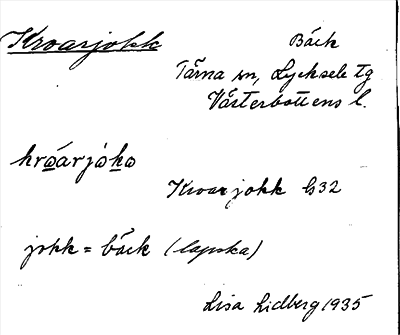 Kroarjokk Bäck
Tärna sn, Lycksele tg
Västerbottens l.
kroarjoko
Kroarjokk G32
jokk = bäck (lapska)
Lisa Lidberg 1935